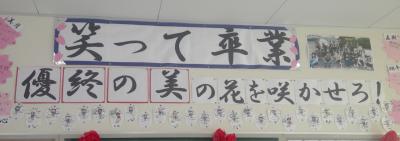 笑って卒業
優終の美の花を咲かせろ!